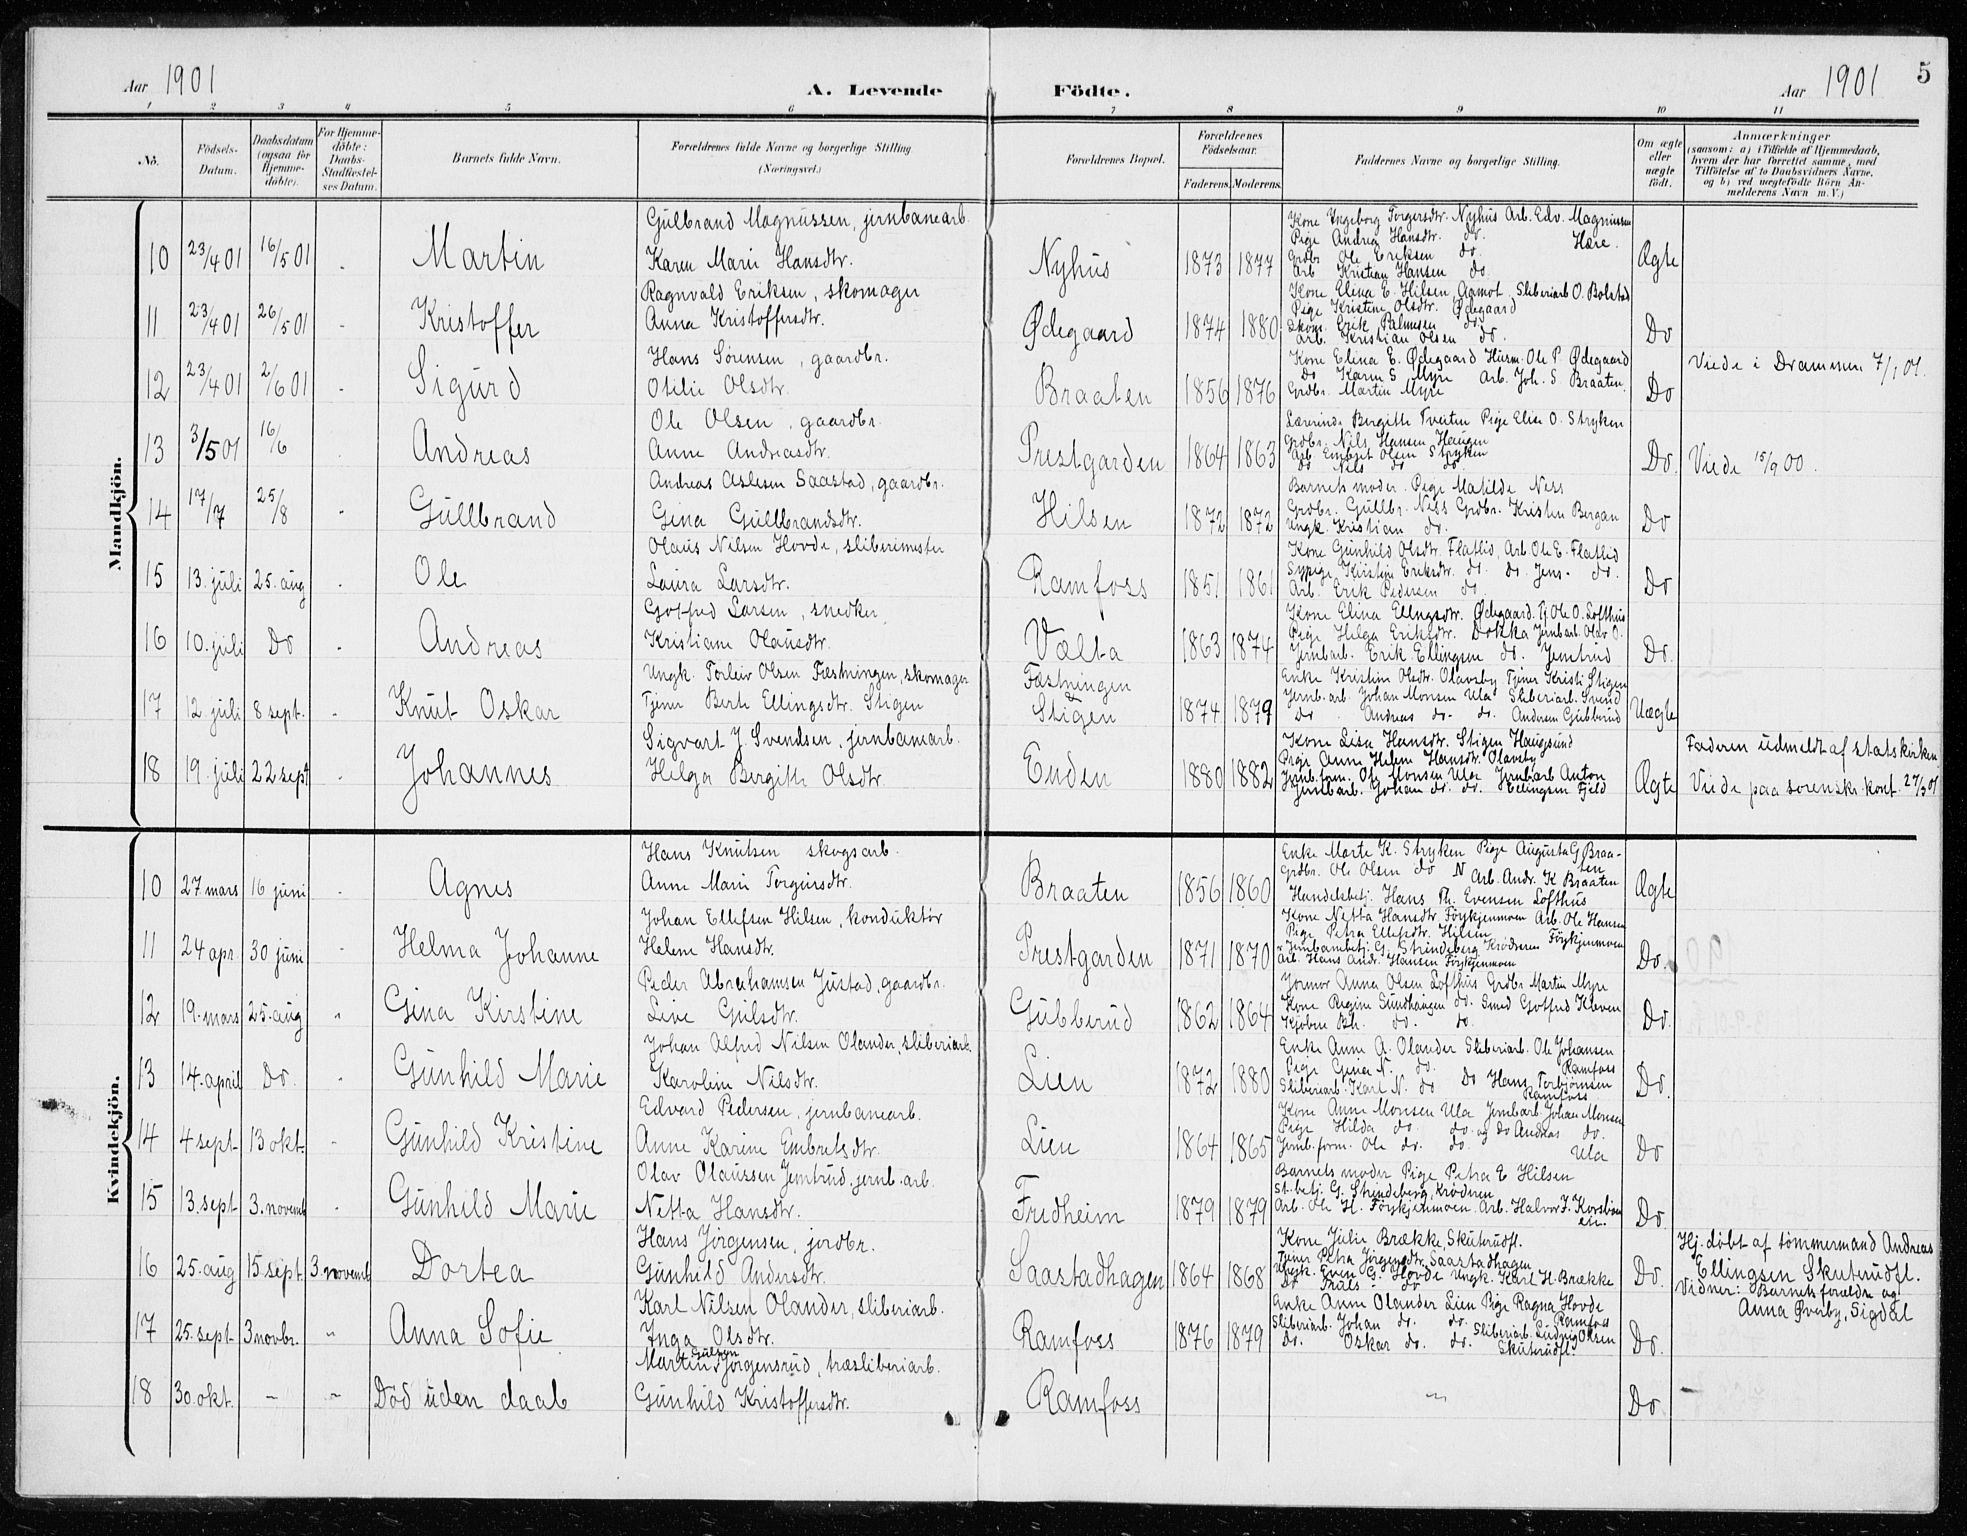 Aar 1901
A. Levende
Födte.
Aar 1901
5
1 2 3 4 5 6 7 8 9 10 11
No.
Födsels-
Datum.
Daabsdatum
(ogsaa for
Hjemme-
döbte).
For Hjemme-
döbte:
Daabs-
Stadfæstel-
ses Datum.
Barnets fulde Navn.
Forældrenes fulde Navne og borgerlige Stilling
(Næringsvei.)
Forældrenes Bopæl.
Forældrenes
Födselsaar.
Faderens. Moderens.
Faddernes Navne og borgerlige Stilling.
Om ægte
eller
uægte
födt.
Anmærkninger
(saasom: a) i Tilfælde af Hjemmedaab,
hvem der har forrettet samme, med
Tilföielse af to Daabsvidners Navne,
og b) ved uægtefödte Börn An-
melderens Navn m. V.)
Mandkjön.
Gulbrand Magnussen, jernbanearb.
10 23/4 01 16/5 01 Martin Karen Marie Hansdtr. Nyhus 1873 1877 Ægte
Kone Ingeborg Torgersdtr. Nyhus Arb. Edv. Magnussen
Pige Andrea Hansdtr. do. Hære.
Grdbr Ole Eriksen do
Arb Kristian Hansen do.
Ragnvald Eriksen, skomager
11 23/4 01 26/5 01 Kristoffer Anna Kristoffersdtr. Ødegaard 1874 1880 Do
Kone Elina E. Hilsen, Aamot Sliberiarb O. Bolstad
Pige Kristine Olsdtr. Ødegaard
Skom. Erik Palmesen do
Arb. Kristian Olsen do.
Hans Sørensen, gaardbr.
12 23/4 01 2/6 01 Sigurd Otilie Olsdtr. Braaten 1856 1876 Do
Kone Elina E. Ødegaard Husm. Ole P Ødegaard
Do Karen S Myre Arb. Joh. S Braaten.
Grdbr. Martin Myre
Viede i Drammen 7/1 01.
Ole Olsen, gaardbr.
13 3/5 01 16/6 Andreas Anne Andreasdtr. Prestgarden 1864 1863 Do.
Lærerinde Bergitte Tveiten Pige Elise O. Stryken
Grdbr. Nils Hansen Haugen
Arb Embret Olsen Stryken
do Nils do do
Viede 15/9 00.
Andreas Aslesen Saastad, gaardbr.
14 17/7 25/8 Gullbrand Gina Gullbrandsdtr. Hilsen 1872 1872 Do
Barnets moder. Pige Matilde Ness
Grdbr. Gullbr. Ness Grdbr. Kristen Bergan
Ungk. Kristian do.
Olaus Nilsen Hovde, sliberimester
15 13. juli 25. aug Ole Laura Larsdtr. Ramfoss 1851 1861 Do
Kone Gunhild Olsdtr. Flatlid, Arb Ole E. Flatlid
Sypige Kristine Eriksdtr. do. do. Jens do.
Arb. Erik Pedersen do
Gotfred Larsen, snedker
16 10. juli Do Andreas Kristiane Olausdtr. Vælta 1863 1874 Do.
Kone Elina Ellingsdtr. Ødegaard. Pj. Ole O. Lofthus
Pige Helga Eriksdtr. Dokka Jernbarb. Olav O.
Jernbarb. Erik Ellingsen do. Jemtrud
Ungk. Torleiv Olsen Fæstningen, skomager
17 12. juli 8 sept. Knut Oskar Tjener Berte Ellingsdtr. Stigen Fæstningen Stigen 1874 1879 Uægte
Enke Kristine Olsdtr. Olavsby Tjener Kristi Stigen
Jernb. arb. Johan Monsen Ula Sliberiarb. Svend
Do. Andreas do. do. Andersen Gubberud
Sigvart J. Svendsen, jernbanearb.
18 19. juli 22 sept Johannes Helga Bergitte Olsdtr. Enden 1880 1882 Ægte
Kone Lisa Hansdtr. Stigen Haugsund
Pige Anne Helene Hansdtr. Olavsby
Jernb.form. Ole Monsen Ula Jernbarb Anton
Jernbarb. Johan do. do. Ellingsen Fjeld
Faderen udmeldt af statskirken
Viede paa sorenskr. kont. 27/3 01
Kvindekjön.
Hans Knutsen skogsarb.
10 27 mars 16 juni Agnes Anne Marie Torgersdtr. Braaten 1856 1860 Ægte
Enke Marte K. Stryken Pige Augusta G Braa-
Grdbr. Ole Olsen do N Arb. Andr. K Braaten ten
Handelsbetj. Hans Th. Evensen Lofthus
Johan Ellefsen Hilsen, konduktør
11 24 apr 30 juni Helma Johanne Helene Hansdtr. Prestgarden 1871 1870 Do.
Kone Netta Hansdtr. Föykjenmoen Arb. Ole Hansen
Pige Petra Ellefsdtr. Hilsen
Jernbanebetj. G. Strindeberg Krødsren Föykjenmoen
Arb. Hans Andr. Hansen Föykjenmoen
Peder Abrahamsen Justad, gaardbr.
12 19. mars 25. aug Gina Kirstine Live Gulsdtr. Gubberud 1862 1864 Do.
Jormor Anna Olsen Lofthus Grdbr Martin Myre
Kone Regine Sundhaugen do. Smed Gotfred Kleven
Johan Alfred Nilsen Olander, sliberiarb.
13 14. april Do. Gunhild Marie Karoline Nilsdtr. Lien 1872 1880 Do.
Enke Anne A. Olander Sliberiarb. Ole Johansen
Pige Gina N. do. Ramfoss
Sliberiarb. Karl N. do Do Hans Torbjørnsen
Ramfoss
Edvard Pedersen, jernbanearb.
14 4 sept 13 okt. Gunhild Kristine Anne Karine Embretsdtr. Lien 1864 1865 Do
Kone Anne Monsen Ula Jernbarb. Johan Monsen
Pige Hilda do. do. og do Andreas do.
Jernb.form. Ole do. do. Ula
Olav Olaussen Jemtrud, jernb. arb.
15 13. sept 3. novemb Gunhild Marie Netta Hansdtr. Fredheim 1879 1879 Do.
Barnets moder Pige Petra E Hilsen
St.betj. G. Strindeberg, Krødsren
Arb. Ole H. Föykjenmoen Arb. Halvor J. Korsbön
eie.
Hans Jörgensen, jordbr.
16 25. aug 15. sept. 3. novemb Dortea Gunhild Andersdtr. Saastadhagen 1864 1868 Do.
Kone Julie Brække, Skuterudfl.
Tjener Petra Jörgensdtr. Saastadhagen
Ungk. Even G. Hovde Ungk. Karl H. Brække
Do Truls do
Hj. döbt af tømmermand Andreas
Ellingsen Skuterudfl.
Vidner: Barnets forældre og
Anna Øverby, Sigdal
Karl Nilsen Olander, sliberiarb.
17 25. sept 3 novbr. Anna Sofie Inga Olsdtr. Ramfoss 1876 1879 Do.
Enke Anne Olander Lien Pige Ragna Hovde
Sliberiarb. Johan do. do. Ramfoss
do. Oskar do. do. Sliberiarb. Ludvig Olsen
Skuterudfl.
Martin Gulsen Jörgensrud, træsliberiarb.
18 30. okt. Död uden daab Gunhild Kristoffersdtr. Ramfoss Do.